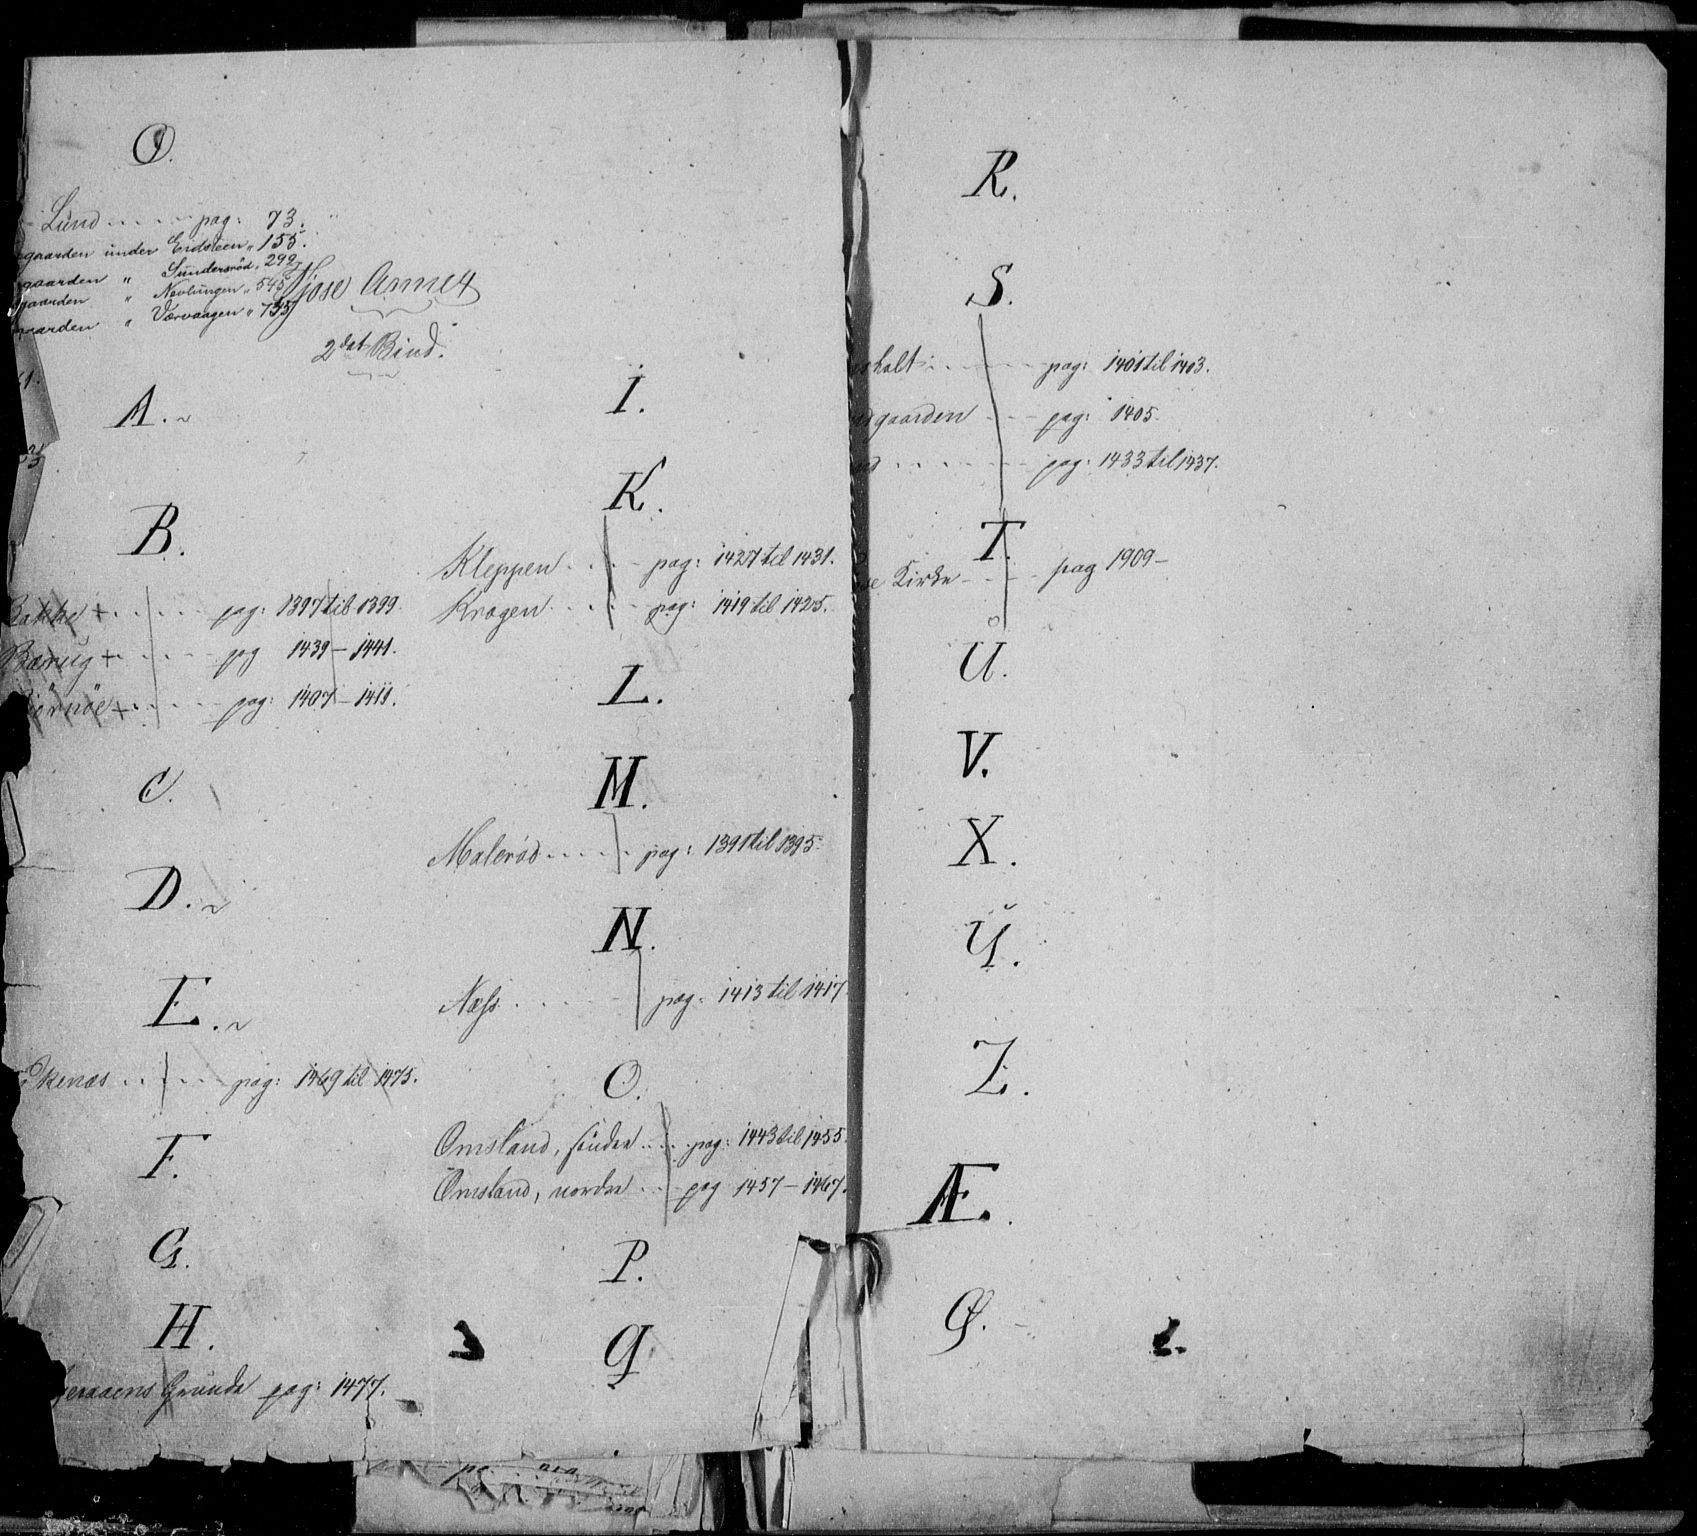 O.
Lund pag: 73.
gaarden under Eidsteen " 155.
gaarden " Sundersrød " 299
gaarden " Nevlungen " 545
gaarden " Værvaagen " 755
Tjose Annex
2det Bind.
A.
B.
Bakke + pag: 1397 til 1399.
Bærug + pag 1439 – 1441.
Bjørnöe + pag: 1407 – 1411.
C.
D.
E.
Ekenæs pag: 1469 til 1475.
F.
G.
H.
Grunde pag: 1477.
I.
K.
Kleppen pag: 1427 til 1431.
Krogen pag: 1419 til 1425.
L.
M.
Malerød pag: 1391 til 1395.
N.
Næss pag: 1413 til 1417
O.
Omsland, söndre pag: 1443 til 1455.
Omsland, nordre pag 1457 – 1467.
P.
Q.
R.
S.
holt pag: 1401 til 1403.
gaarden pag: 1405.
pag: 1433 til 1437.
T.
Kirke pag 1909 –
U.
V.
X.
Y.
Z.
Æ.
Ø.